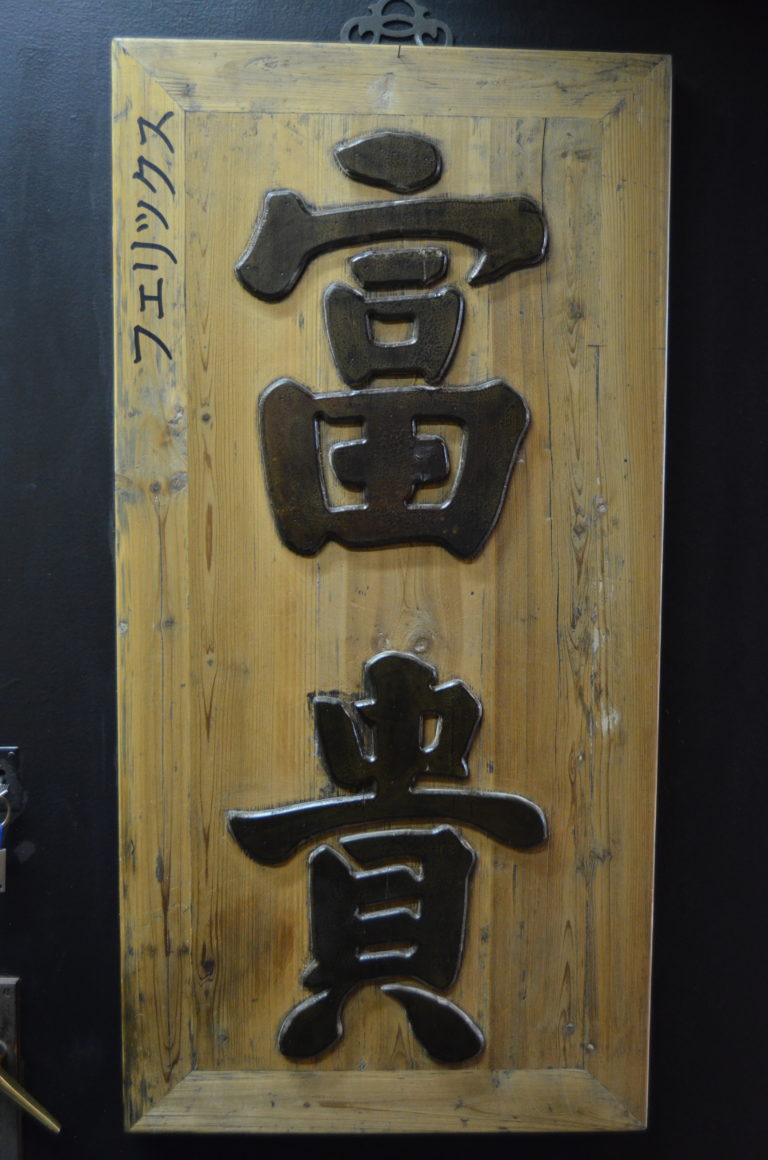 富貴
フェリックス